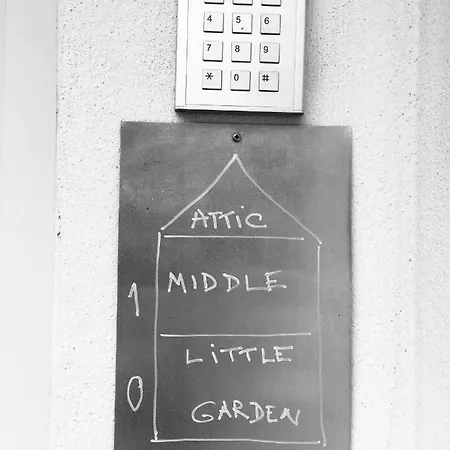 4 5 6
7 8 9
* 0 #
ATTIC
1 MIDDLE
LITTLE
0
GARDEN